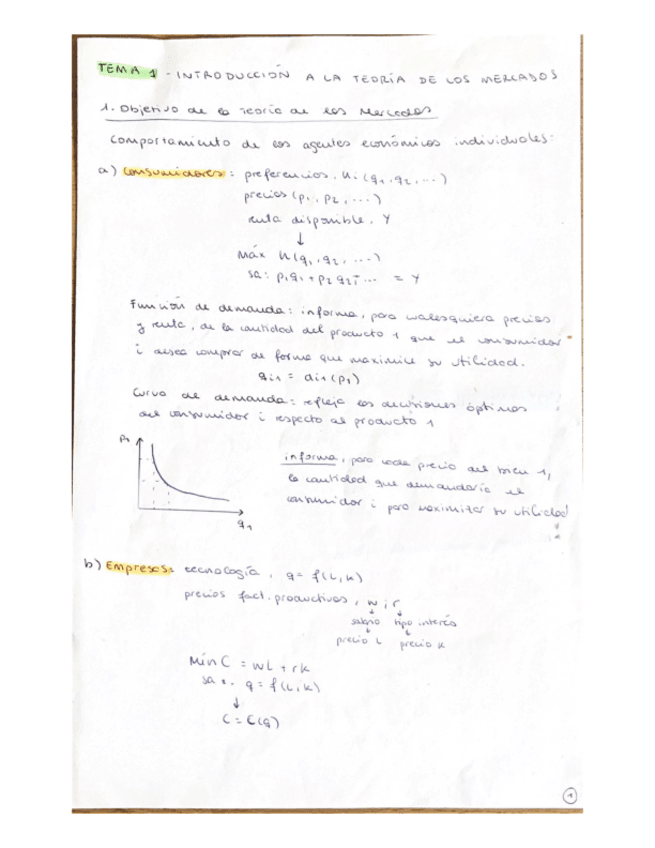 TEMA 1 - INTRODUCCIÓN A LA TEORÍA DE LOS MERCADOS
1. Objetivo de la Teoría de los Mercados
Comportamiento de los agentes económicos individuales:
a) Consumidores: preferencias, Ui (q1, q2, ...)
precios (p1, p2, ...)
renta disponible, Y
↓
Máx U(q1, q2, ...)
sa: p1q1 + p2q2+... = Y
Función de demanda: informa, para cualesquiera precios
y renta, de la cantidad del producto 1 que el consumidor
i desea comprar de forma que maximice su utilidad.
qi1 = di1 (p1)
Curva de demanda: refleja las decisiones óptimas
del consumidor i respecto al producto 1
P1
q1
informa, para cada precio del bien 1,
la cantidad que demandaría el
consumidor i para maximizar su utilidad
b) Empresas: tecnología, q = f(L, K)
precios fact. productivos, w, r
salario tipo interés
precio L precio K
Mín C = wL + rK
sa. q = f(L, K)
↓
C = C(q)
1